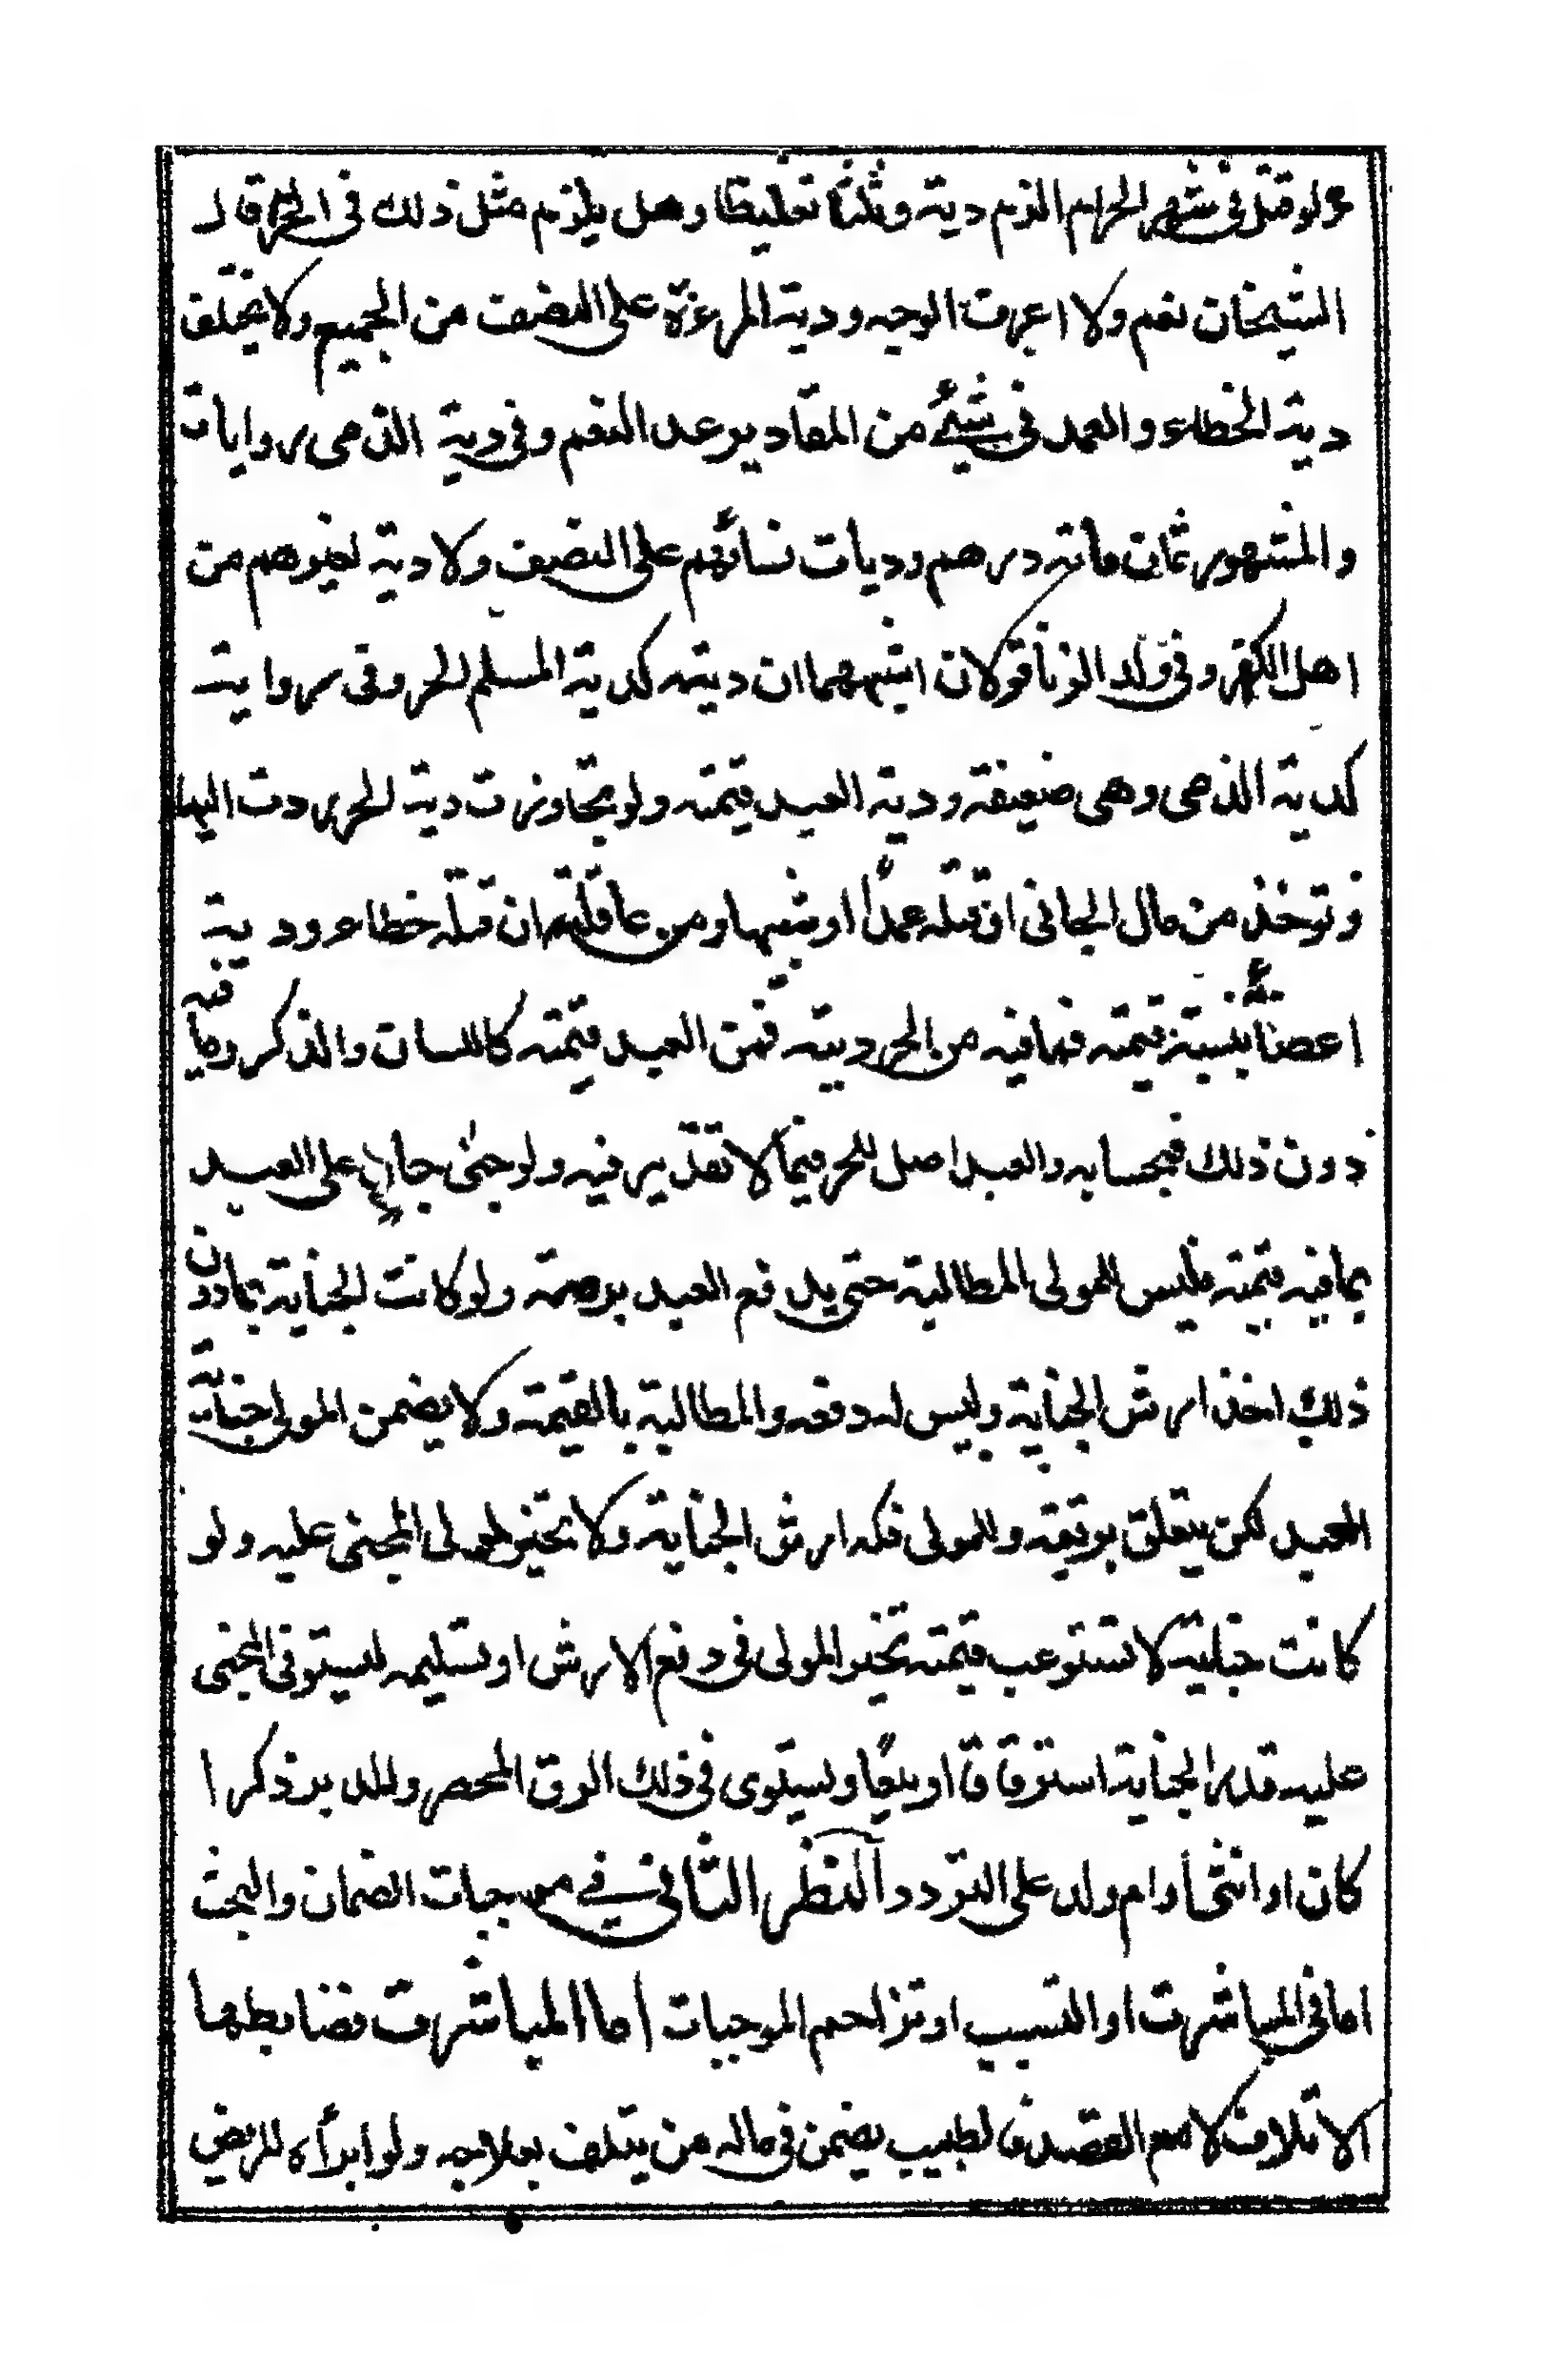 ولو قتل فى شهر الحرام الزم دية وثلثا تغليظا وهل يلزم مثل ذلك فى الحرم قال
الشيخان نعم ولا اعرف الوجه ودية المرءة على النصف من الجميع ولا يختلف
دية الخطاء والعمد فى شيئ من المقادير عدا النعم وفى دية الذمى روايات
والمشهور ثمان مائة درهم وديات نسائهم على النصف ولا دية لغيرهم من
اهل الكفر وفى ولد الزنا قولان اشبههما ان ديته كدية المسلم الحر وفى رواية
كدية الذمى وهى ضعيفة ودية العبد قيمته ولو تجاوزت دية الحر ردت اليها
وتوخذ من مال الجانى ان قتله عمدًا او شبيها ومن عاقلته ان قتله خطاء ودية
اعضائه بنسبة قيمته فما فيه من الحر ديته فمن العبد قيمته كاللسان والذكر وما فيه
دون ذلك فبحسابه والعبد اصل للحر فيما لا تقدير فيه ولو جنى جان على العبد
بما فيه قيمته فليس للمولى المطالبة حتى يدفع العبد برمته ولو كانت الجناية بما دون
ذلك اخذ ارش الجناية وليس له دفعه والمطالبة بالقيمة ولا يضمن المولى جناية
العبد لكن يتعلق برقبته وللمولى فكه ارش الجناية ولا تخير لمولى المجنى عليه ولو
كانت جنايته لا تستوعب قيمته تخير المولى فى دفع الارش او تسليمه ليستوفى المجنى
عليه قدر الجناية استرقاقا او بيعًا ويستوى فى ذلك الرق المحض والمدبر ذكرا
كان او انثى او ام ولد على التردد النظر الثانى فى موجبات الضمان والبحث
اما فى المباشرت او التسبيب او تزاحم الموجبات اما المباشرت فضابطها
الاتلاف لا مع القصد فالطبيب يضمن فى ماله من يتلف بعلاجه ولو ابرأه المريض